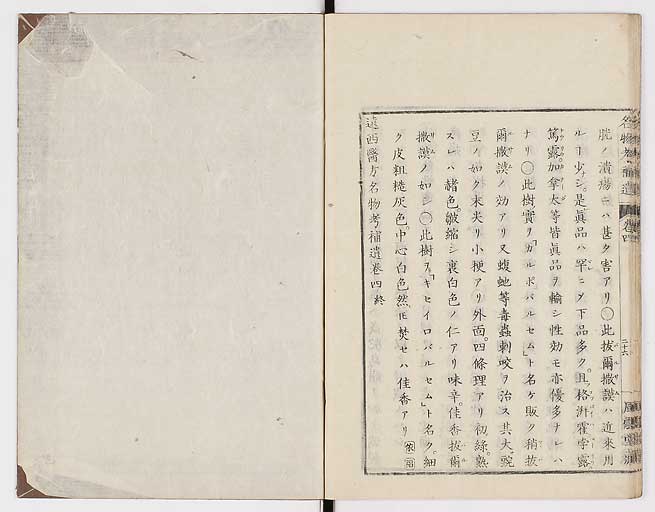 名物考補遺 卷四 二十六
脱ノ潰瘍ニハ甚タ害アリ〇此拔爾撒謨ハ近來用
ルヿ少シ。是眞品ハ罕ニ乄下品多ク。且格 霍李露
篤露加拿太等皆眞品ヲ輸シ性効モ亦優多ナレハ
ナリ〇此樹ノ實ヲ「カルポバルセム」ト名ケ販ク稍拔
爾撒謨ノ効アリ又蝮蚰等毒蟲刺咬ヲ治ス其大豌
豆ノ如ク末尖リ小梗アリ外面四條理アリ初綠熟
スレハ赭色皺縮シ裏白色ノ仁アリ味辛。佳香拔爾
撒謨ノ如シ〇此樹ヲ「キセイロバルセム」ト名ク。細
ク皮粗糙灰色。中心白色然𪜈焚セハ佳香アリ
遠西醫方名物考補遺卷四終